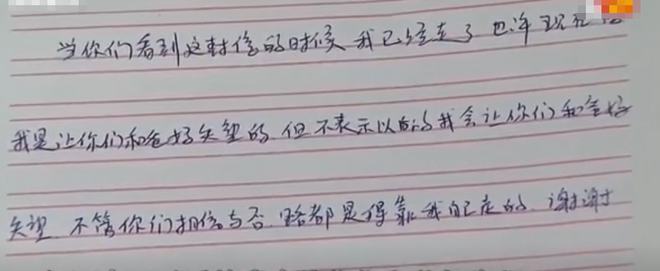 当你们看到这封信的时候 我已经走了 也许现在的
我是让你们和爸妈失望的 但不表示以后的我会让你们和爸妈
失望 不管你们相信与否 路都是得靠我自己走的 谢谢